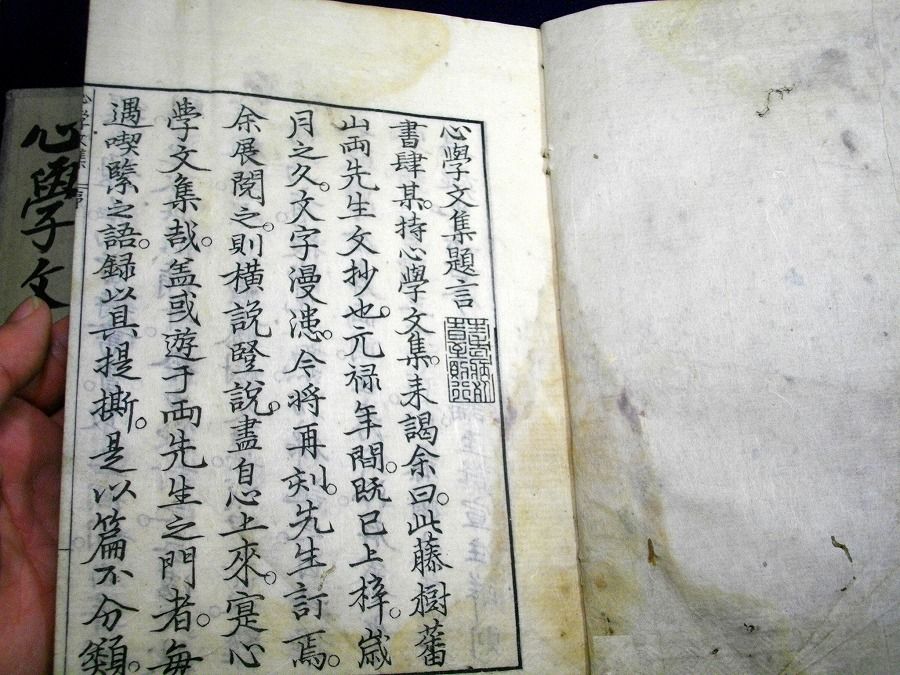 心學文集題言
書肆某。持心學文集。来謁余曰。此藤樹蕃
山両先生文抄也。元禄年間。既已上梓。歳
月之久。文字漫漶。今将再刻。先生訂焉。
余展閲之。則横説竪説。盡自心上來。寔心
學文集哉。盖或遊于両先生之門者。毎
遇喫緊之語。録以具提撕。是以篇不分類。
心學文